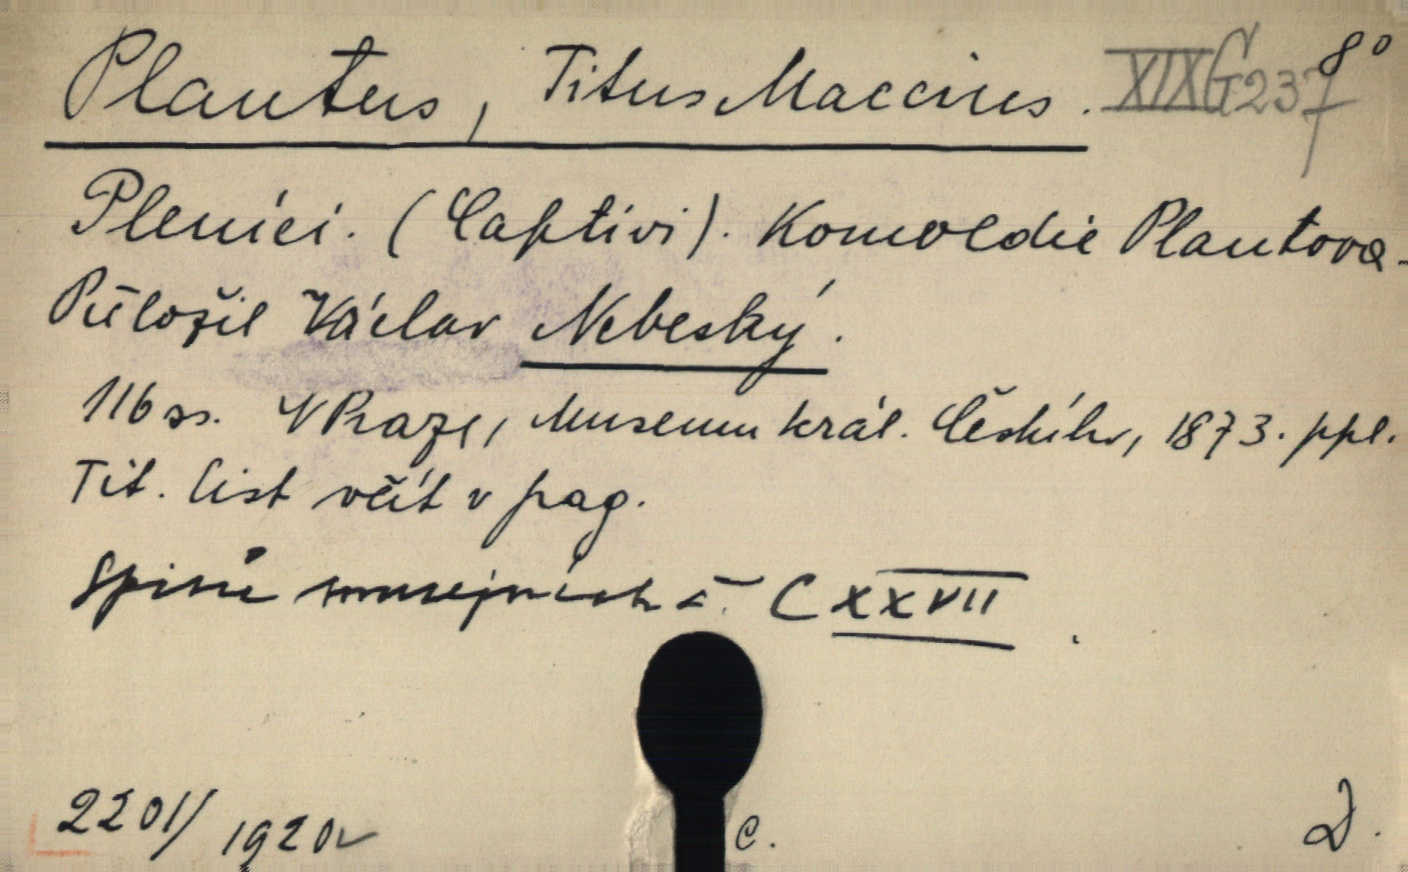 Plautus, Titus Maccius. XIX G 237 8°
Pleníci. (Captivi). Komoedie Plautova.
Přeložil Václav Nebeský.
116 ss. V Praze, Museum král. Českého, 1873. ppl.
Tit. list včít v pag.
Spisů musejních č. CXXVII.
2201/1920
c. D.